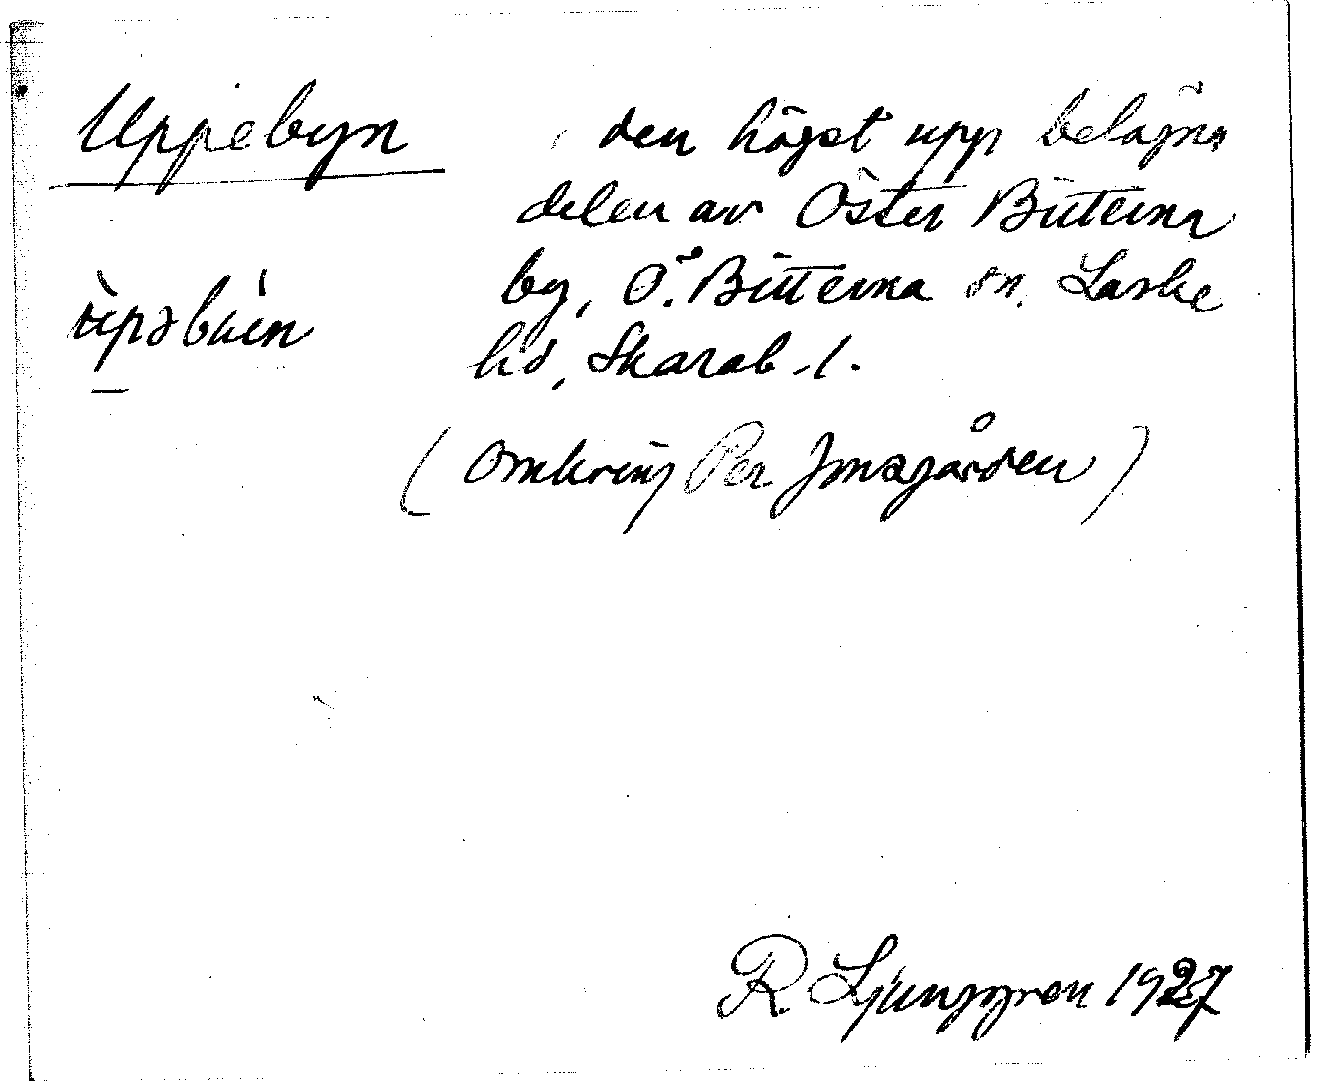 Uppebyn, den högst upp belägna
delen av Öster Bitterna
by, Ö. Bitterna sn. Laske
hd, Skarab. l.
ùpəbúen
(Omkring Per Jonsgården)
R. Ljunggren 1927